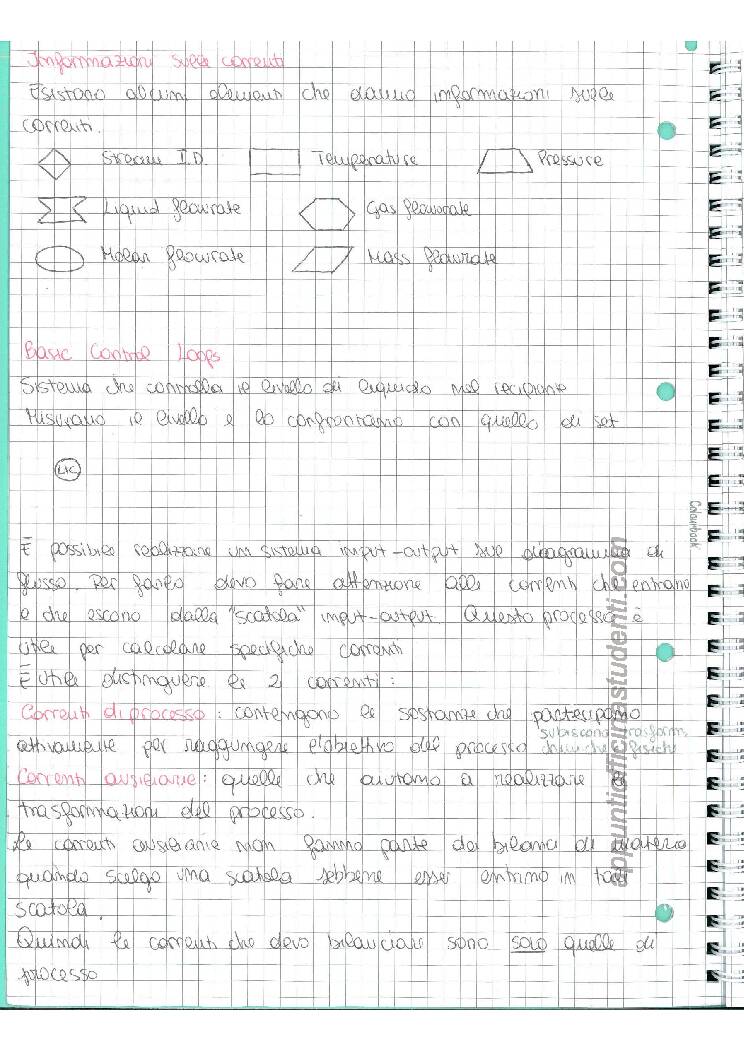 Informazioni sulle correnti
Esistono alcuni elementi che danno informazioni sulle
correnti.
Stream I.D. Temperature Pressure
Liquid flowrate Gas flowrate
Molar flowrate Mass flowrate
Basic Control Loops
Sistema che controlla il livello di liquido nel recipiente
Misurano il livello e lo confrontiamo con quello di set
LIC
È possibile realizzare un sistema input-output sul diagramma di
flusso. Per farlo devo fare attenzione alle correnti che entrano
e che escono dalla "scatola" input-output. Questo processo è
utile per calcolare specifiche correnti
È utile distinguere le 2 correnti:
Correnti di processo: contengono le sostanze che partecipano
attivamente per raggiungere l'obiettivo del processo
subiscono trasform.
chimiche fisiche
Correnti ausiliarie: quelle che aiutano a realizzare le
trasformazioni del processo.
Le correnti ausiliarie non fanno parte dei bilanci di materia
quando scelgo una scatola sebbene esse entrino in tale
scatola.
Quindi le correnti che devo bilanciare sono solo quelle di
processo
Colourbook
appuntiofficinastudenti.com